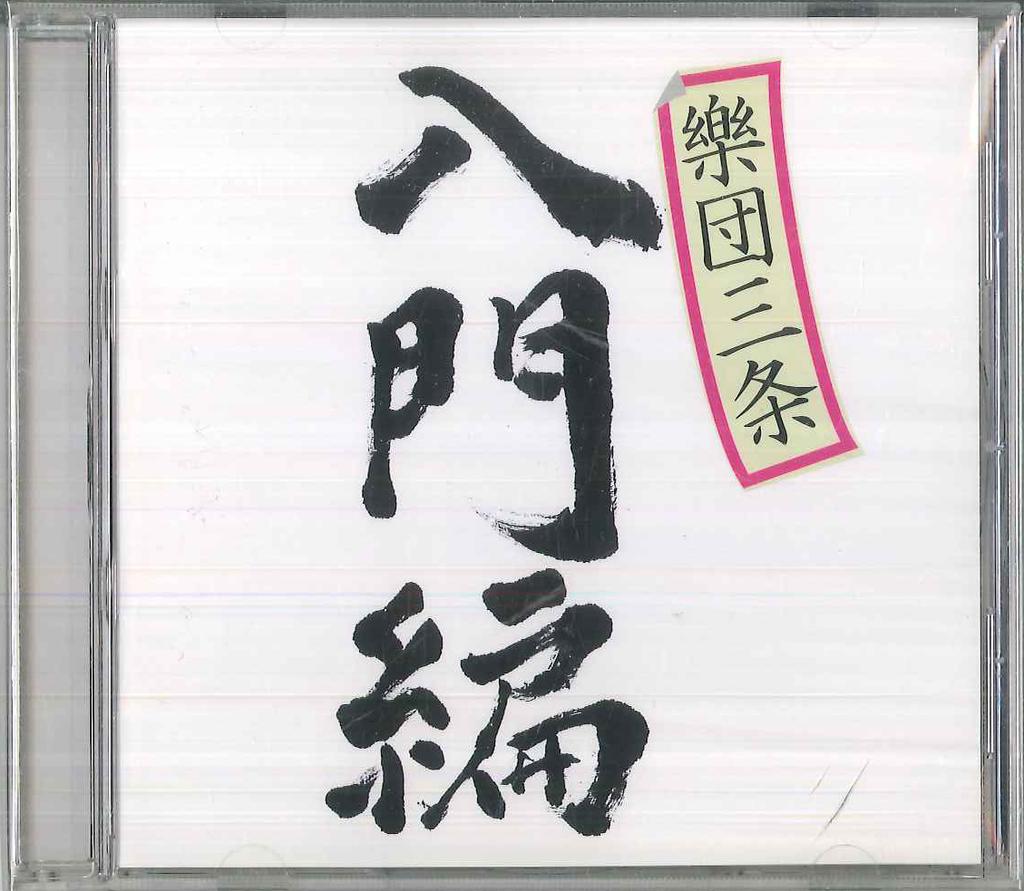 樂団三条
入門編